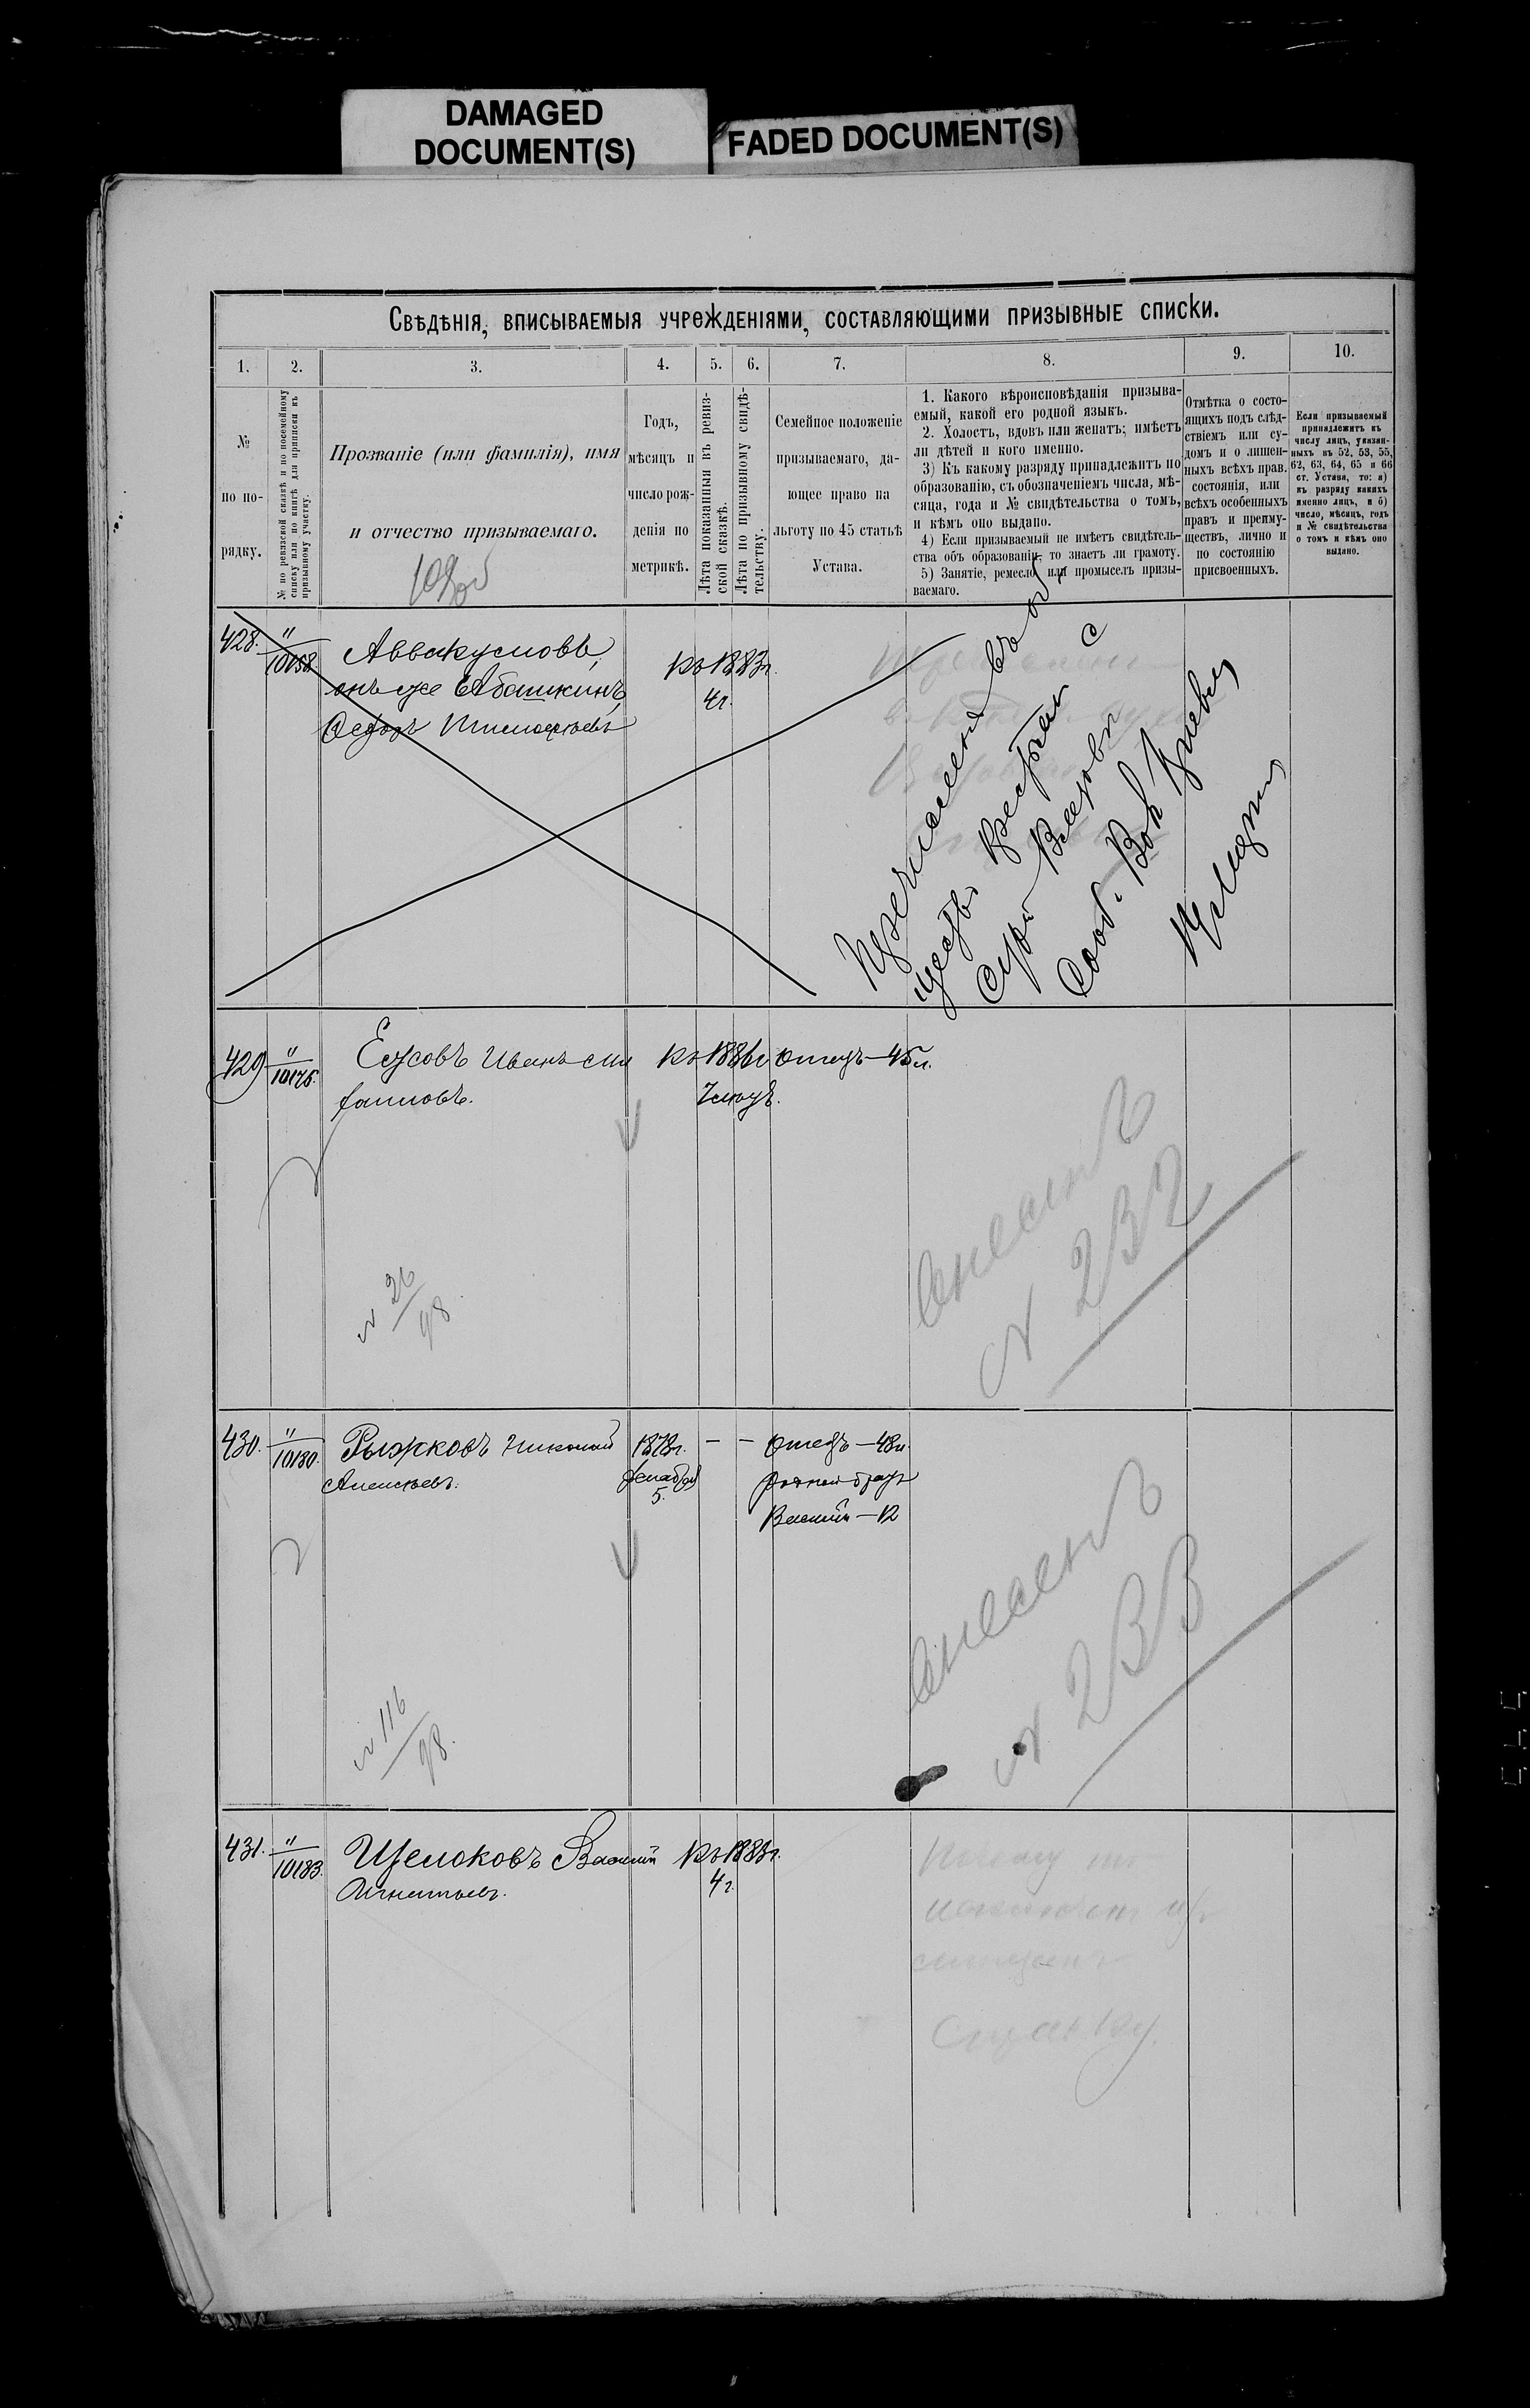 DAMAGED
DOCUMENT(S)
FADED DOCUMENT(S)
Свѣдѣнія, вписываемыя учрежденіями, составляющими призывные списки.
1.
2.
3.
4.
5.
6.
7.
8.
9.
10.
№
по по-
рядку.
№ по ревизской сказкѣ и по посемейному
списку или по книгѣ для приписки къ
призывному участку.
Прозваніе (или фамилія), имя
и отчество призываемаго.
Годъ,
мѣсяцъ и
число рож-
денія по
метрикѣ.
Лѣта показанныя въ ревиз-
ской сказкѣ.
Лѣта по призывному свидѣ-
тельству.
Семейное положеніе
призываемаго, да-
ющее право на
льготу по 45 статьѣ
Устава.
1. Какого вѣроисповѣданія призыва-
емый, какой его родной языкъ.
2. Холостъ, вдовъ или женатъ; имѣетъ
ли дѣтей и кого именно.
3) Къ какому разряду принадлежитъ по
образованію, съ обозначеніемъ числа, мѣ-
сяца, года и № свидѣтельства о томъ,
и кѣмъ оно выдано.
4) Если призываемый не имѣетъ свидѣтель-
ства объ образованіи, то знаетъ ли грамоту.
5) Занятіе, ремесло или промыселъ призы-
ваемаго.
Отмѣтка о состо-
ящихъ подъ слѣд-
ствіемъ или су-
домъ и о лишен-
ныхъ всѣхъ прав.
состоянія, или
всѣхъ особенныхъ
правъ и преиму-
ществъ, лично и
по состоянію
присвоенныхъ.
Если призываемый
принадлежитъ къ
числу лицъ, указан-
ныхъ въ 52, 53, 55,
62, 63, 64, 65 и 66
ст. Устава, то: а)
къ разряду какихъ
именно лицъ, и б)
число, мѣсяцъ, годъ
и № свидѣтельства
о томъ и кѣмъ оно
выдано.
428. "/10158 Аввакумовъ, къ 1883г.
онъ же Абашкинъ, 4л.
Ѳедоръ Тимофѣевъ
429 "/10175. Ежовъ Иванъ къ 1886г Отецъ—45л.
7 мѣсяц.
Внесенъ
№ 232
№ 26/98
430. "/10180. Рыжковъ Николай 1878г. – – Отецъ—48л.
Алексѣевъ. Декабря родной братъ
5. Василій—12
Внесенъ
№ 233
№ 116/98.
431. "/10183. Щелоковъ Василій къ 1883г.
Игнатьевъ. 4г.
Почему не
справку.